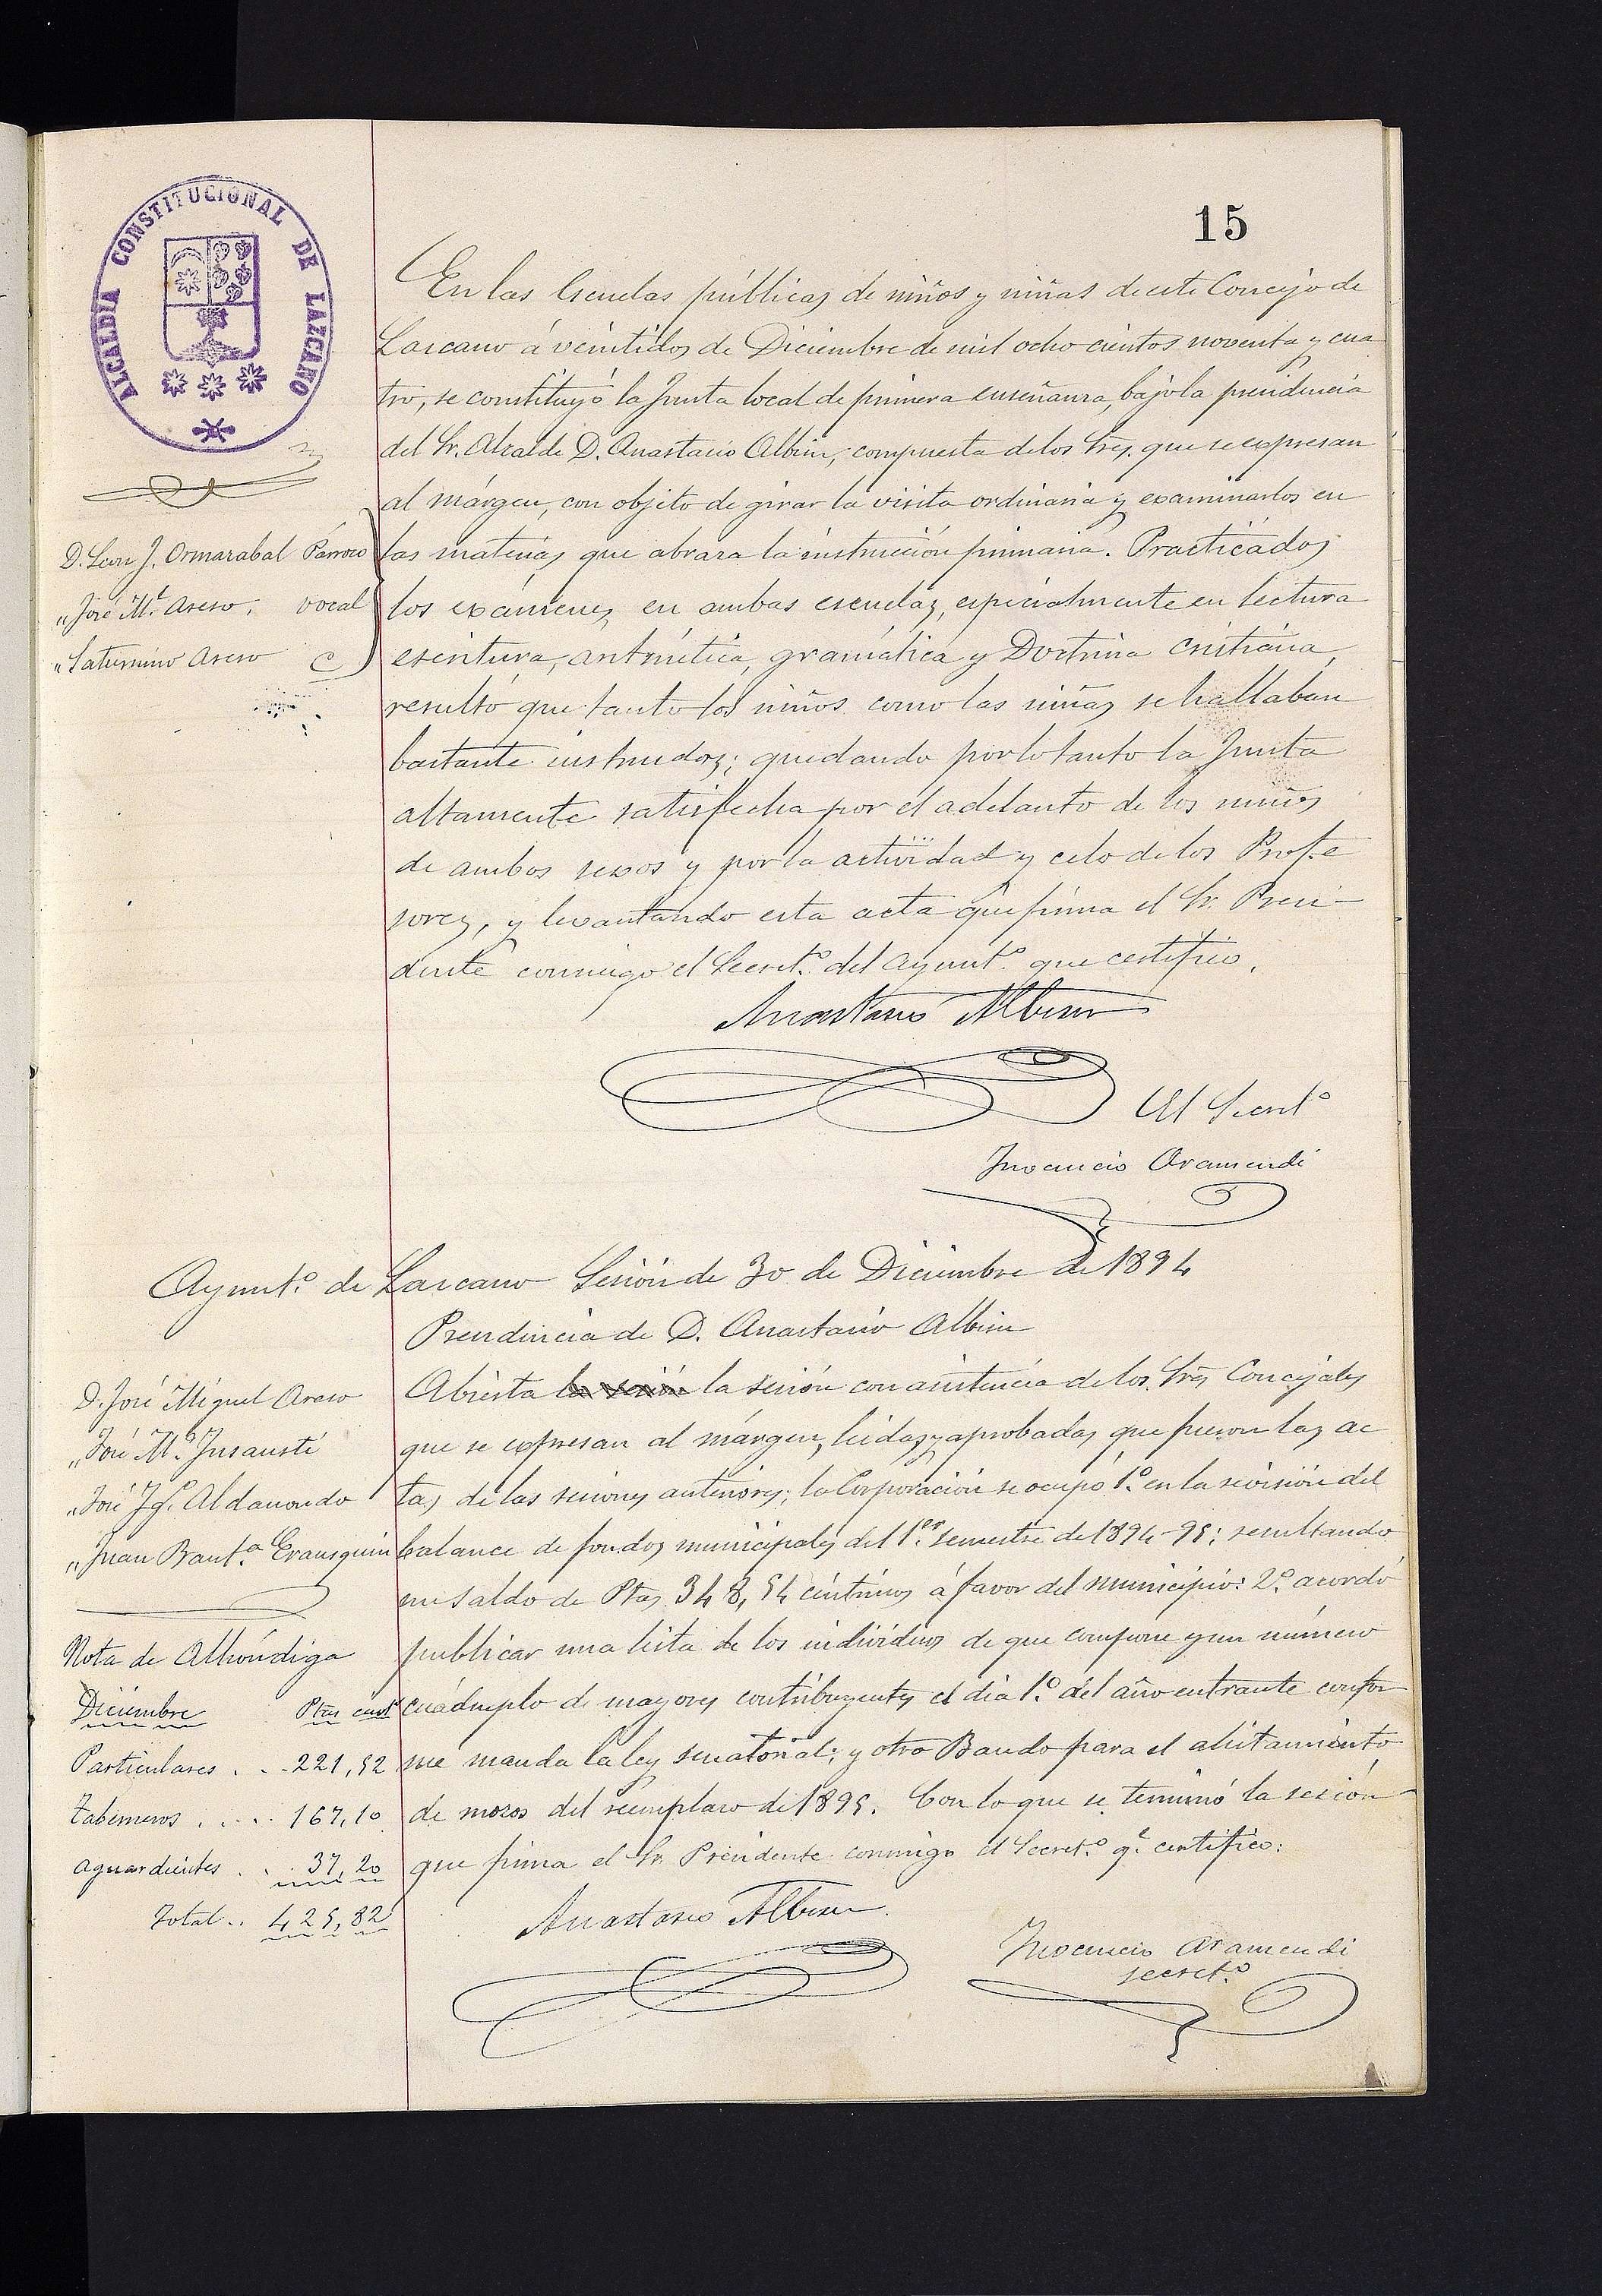 15
ALCALDIA CONSTITUCIONAL DE LAZCANO
En las Escuelas públicas de niños y niñas de este Concejo de
Lazcano á veintidos de Diciembre de mil ocho cientos noventa y cua
tro, se constituyó la Junta local de primera enseñanza, bajo la presidencia
del Sr. Alcalde D. Anastasio Albisu, compuesta de los Sres. que se expresan
al márgen, con objeto de girar la visita ordinaria y examinarlos en
D. Leon J. Ormazabal Párroco
"José M.ª Aseso, vocal
"Saturnino Aseso
las materias que abraza la instrucción primaria. Practicados
los exámenes, en ambas escuelas, especialmente en lectura
escritura, aritmética, gramática y Doctrina Cristiana,
resultó que tanto los niños como las niñas se hallaban
bastante instruidos; quedando por lo tanto la Junta
altamente satisfecha por el adelanto de los niños
de ambos sexos y por la actividad y celo de los Profe
sores, y levantando esta acta que firma el Sr. Presi-
dente conmigo el Secret.º del Ayunt.º que certifico.
Anastasio Albisu
El Secret.º
Inocencio Aramendi
Ayunt.º de Lazcano Sesión de 30 de Diciembre de 1894
Presidencia de D. Anastasio Albisu
D. José Miguel Aseso
"José M.ª Insausti
"José Ig.º Aldanondo
"Juan Baut.ª Erausquin
Abierta la sesión la sesión con asistencia de los Sres Concejales
que se expresan al márgen, leidas y aprobadas que fueron las ac
tas de las sesiones anteriores; la Corporación se ocupó 1.º en la revisión del
balance de fondos municipales del 1.er semestre de 1894-95; resultando
un saldo de Ptas 348,54 céntimos á favor del municipio: 2.º acordó
publicar una lista de los individuos de que compone y un número
cuádruplo de mayores contribuyentes el dia 1.º del año entrante confor
me manda la ley senatorial; y otro Bando para el alistamiento
de mozos del reemplazo de 1895. Con lo que se terminó la sesión
que firma el Sr. Presidente conmigo el Secret.º q.e certifico:
Nota de Alhóndiga
Diciembre Ptas cent
Particulares . . . 221,52
Taberneros . . . . 167,10
Aguardientes . . . 37,20
Total . . 425,82
Anastasio Albisu
Inocencio Aramendi
secret.º